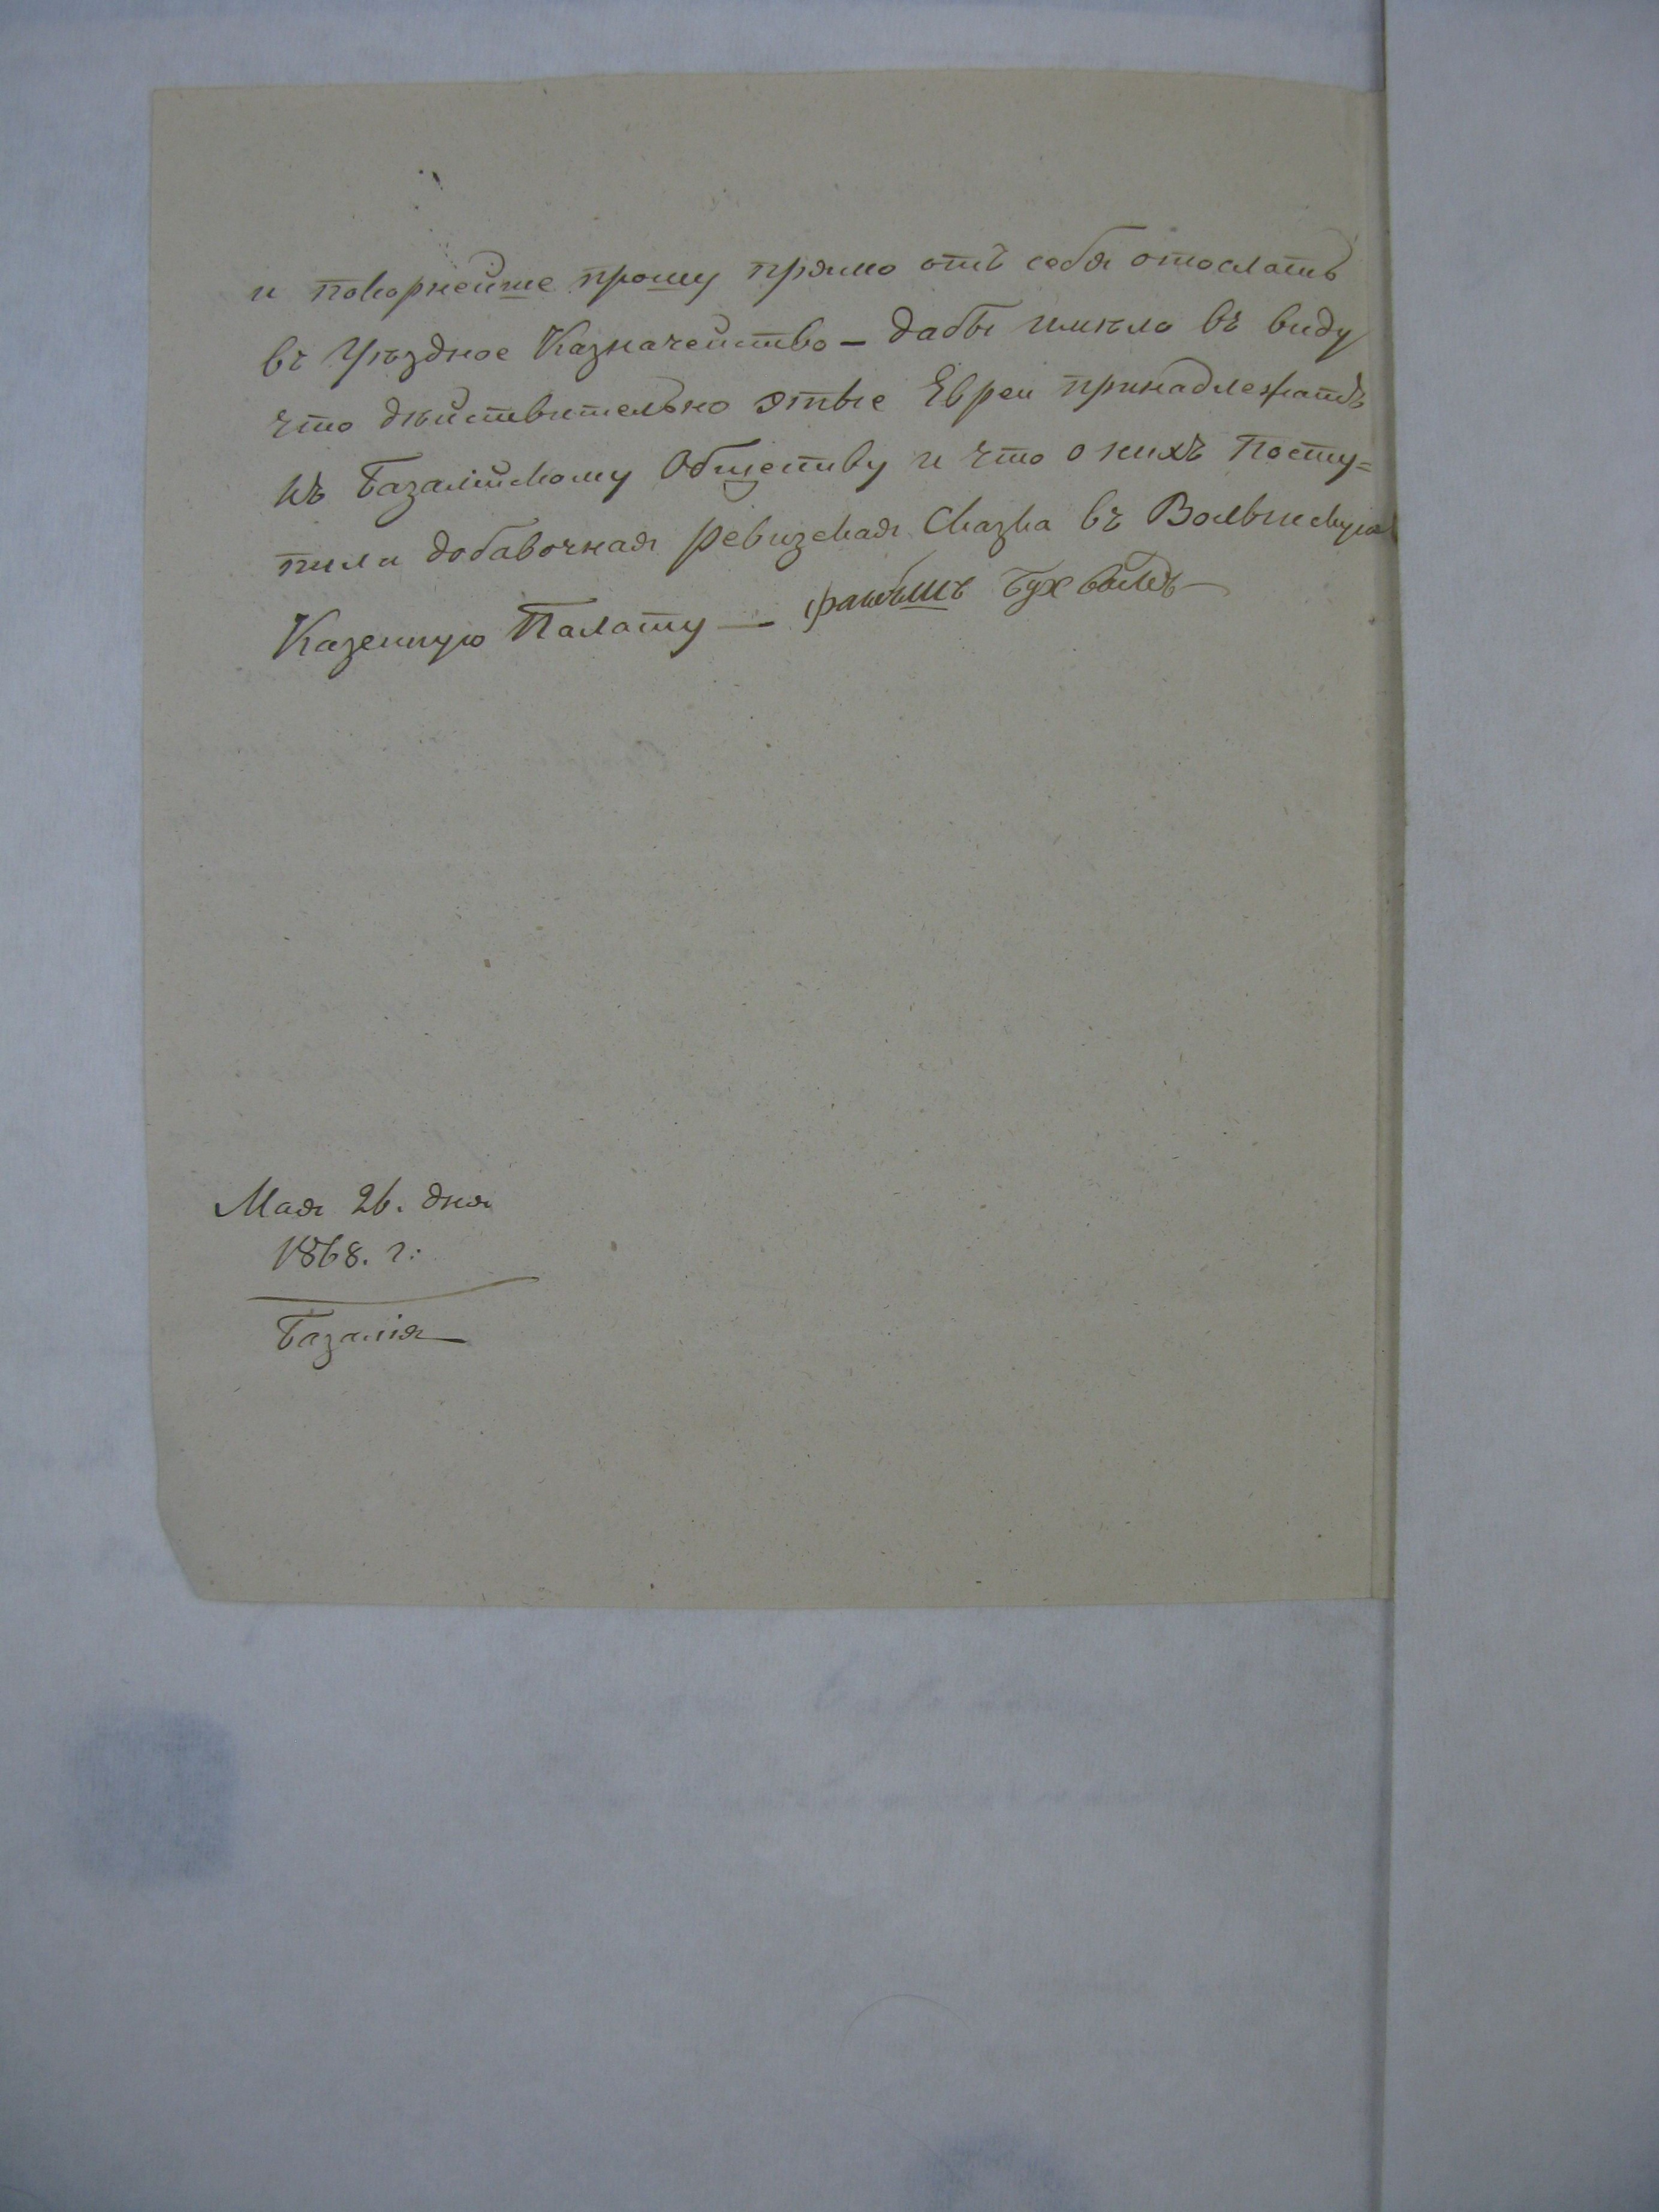 и покорнейше прошу прямо отъ себя отослать
въ Уѣздное Казначейство — дабы имѣло въ виду
что дѣйствительно этые Евреи принадлежатъ
къ Базалійскому Обществу и что о нихъ посту=
пила добавочная ревизская Сказка въ Волынскую
Казенную Палату —
Мая 26. дня
1868. г:
Базалія